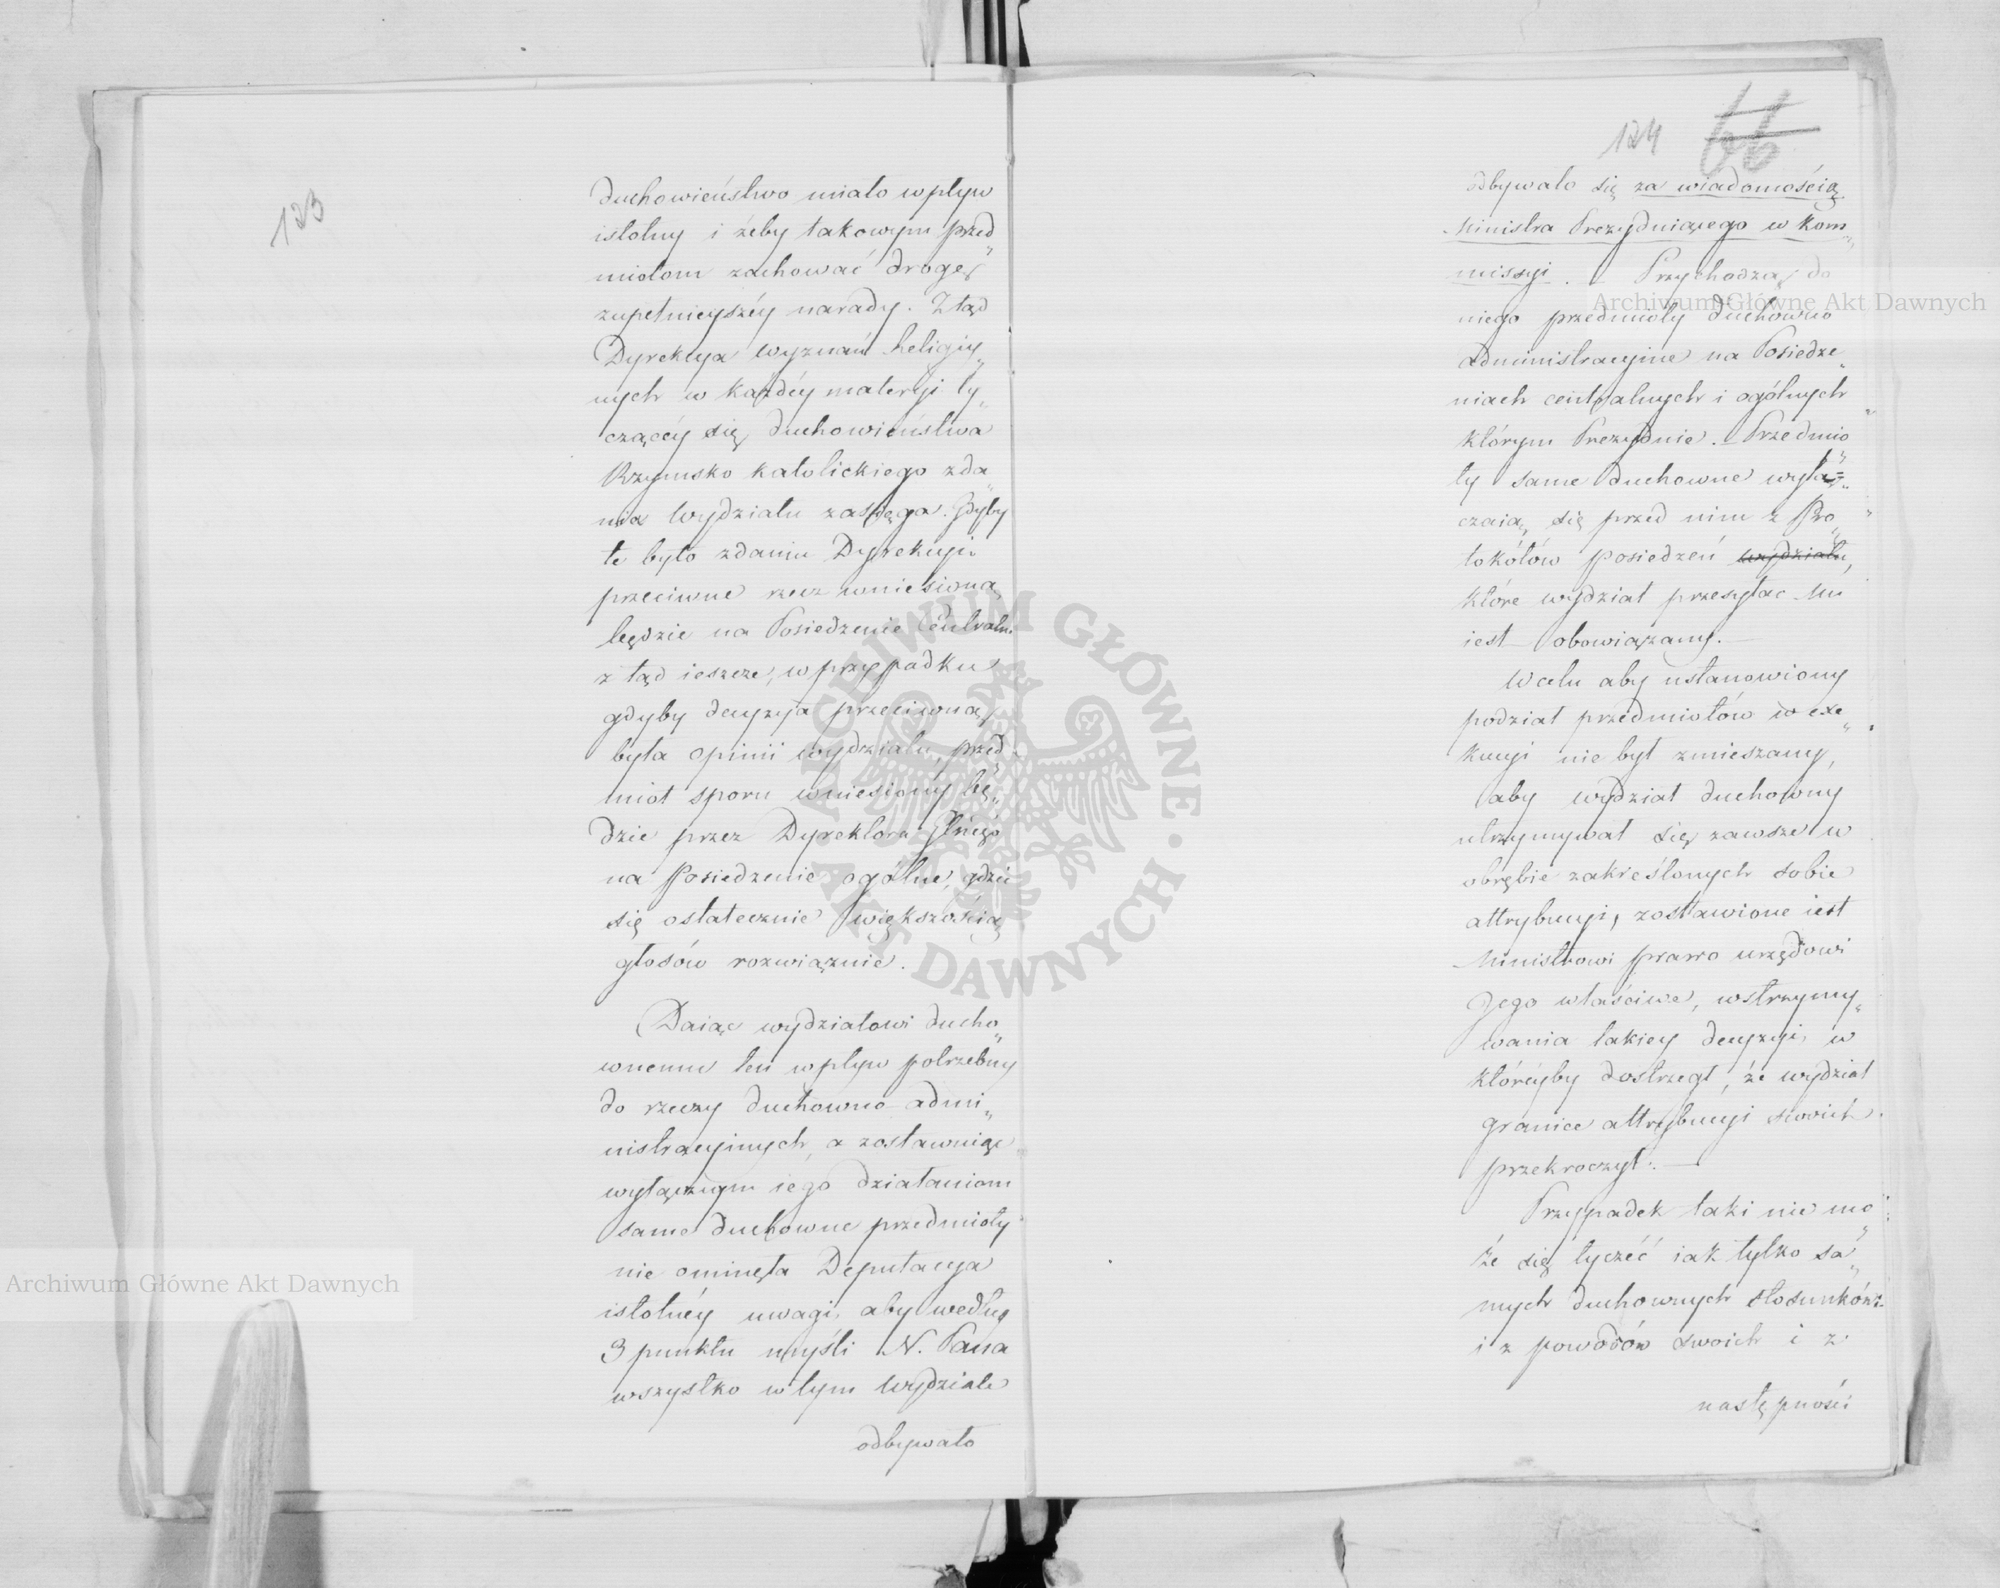 123
duchowieństwo miało wpływ
istotny i żeby takowym przed„
miotom zachować drogę
zupełnieyszéy narady. Ztąd
Dyrekcya wyznań Religiy„
nych w każdéy materyi ty„
czącéy się duchowieństwa
Rzymsko katolickiego zda„
nia Wydziału zasięga. Gdyby
te było zdaniu Dyrekcyi
przeciwne rzecz wniesioną
będzie na Posiedzenie Centralne
z tąd ieszcze, w przypadku
gdyby decyzya przeciwną
była opinii wydziału, przed„
miot sporu wniesiony bę„
dzie przez Dyrektora Głnego
na Posiedzenie ogólne, gdzie
się ostatecznie większością
głosów rozwiąznie.
Daiąc wydziałowi ducho„
wnemu ten wpływ potrzebny
do rzeczy duchowno admi„
nistracyinych, a zostawuiąc
wyłącznym iego działaniom
same duchowne przedmioty
nie ominęła Deputacya
istotnéy uwagi, aby według
3 punktu myśli N. Pana
wszystko w tym Wydziale
odbywało
124 66
odbywało się za wiadomością
Ministra Prezyduiącego w Kom„
missyi. _ Przychodzą do
niego przedmioty duchowno
administracyine na Posiedze„
niach centralnych i ogólnych
którym Prezyduie. _ Przedmio„
ty same duchowne wyłą„
czaią się przed nim z Pro„
tokółów posiedzeń wydziału,
które wydział przesyłac Mu
iest obowiązany. _
W celu aby ustanowiony
podział przedmiotów w exe„
kucyi nie był zmieszany,
aby wydział duchowny
utrzymywał się zawsze w
obrębie zakreślonych sobie
attrybucyi, zostawione iest
Ministrowi prawo urzędowi
Jego właściwe, wstrzymy„
wania takiey decyzyi, w
któréyby dostrzegł, że wydział
granice attrybucyi swoich
przekroczył. _
Przypadek taki nie mo„
że się tyczéć iak tylko sa„
mych duchownych stosunków
i z powodów swoich i z
następności
Archiwum Główne Akt Dawnych
Archiwum Główne Akt Dawnych
ARCHIWUM GŁÓWNE · AKT DAWNYCH ·